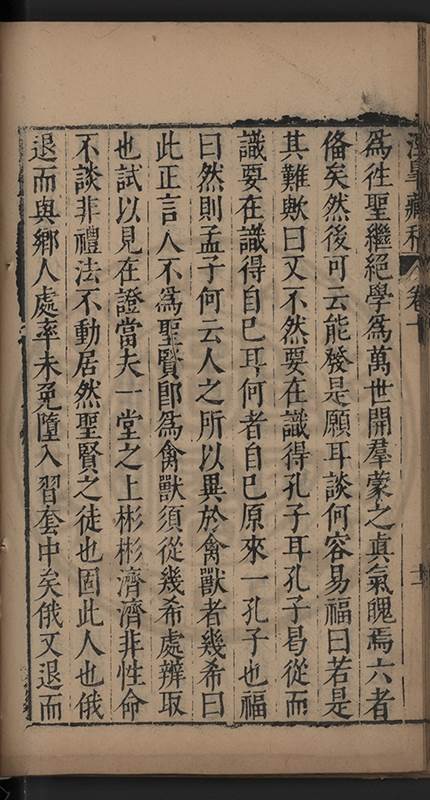 藏稿 卷十
爲徃聖繼絕學爲萬世開羣蒙之眞氣魄焉六者
俻矣然後可云能發是願耳談何容易福曰若是
其難歟曰又不然要在識得孔子耳孔子曷從而
識要在識得自已耳何者自已原來一孔子也福
曰然則孟子何云人之所以異於禽獸者幾希曰
此正言人不爲聖賢卽爲禽獸須從幾希處辨取
也試以見在證當夫一堂之上彬彬濟濟非性命
不談非禮法不動居然聖賢之徒也固此人也俄
退而與鄉人處率未免墮入習套中矣俄又退而